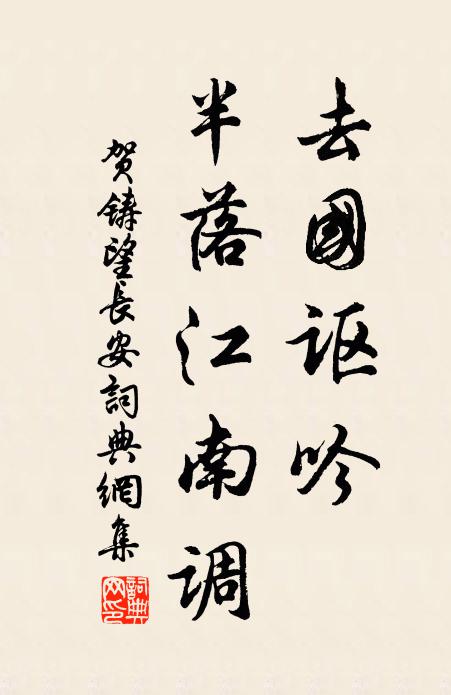 去國讴吟
半落江南調
賀鑄望長安詞典網集
詞典
网印